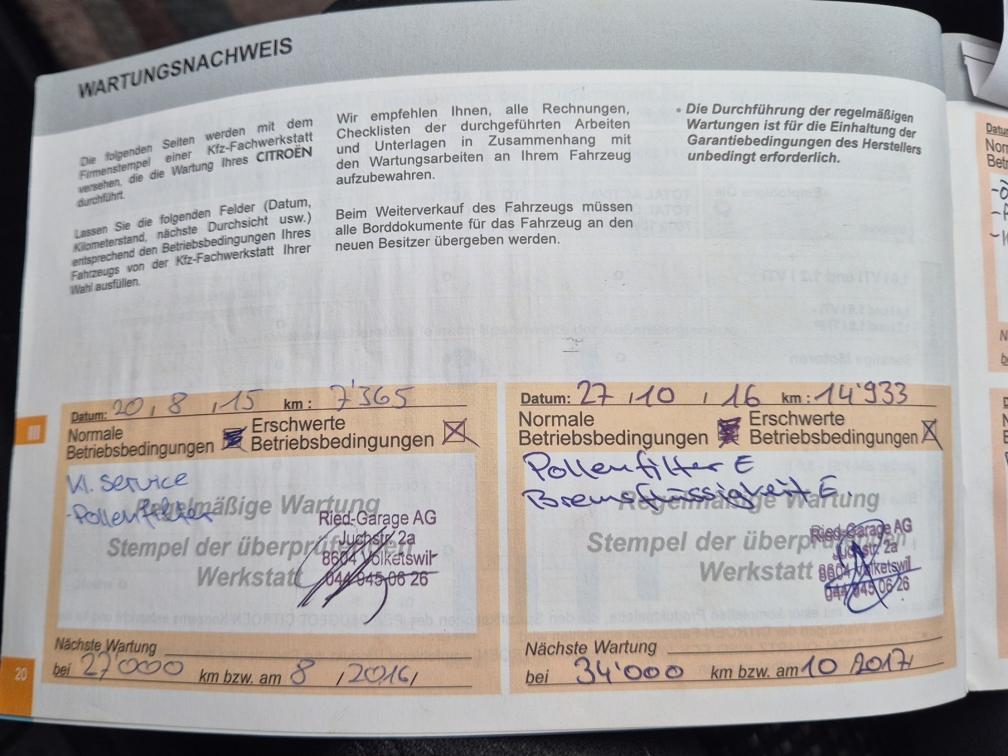 WARTUNGSNACHWEIS
Die folgenden Seiten werden mit dem
Firmenstempel einer Kfz-Fachwerkstatt
versehen, die die Wartung Ihres CITROËN
durchführt.
Lassen Sie die folgenden Felder (Datum,
Kilometerstand, nächste Durchsicht usw.)
entsprechend den Betriebsbedingungen Ihres
Fahrzeugs von der Kfz-Fachwerkstatt Ihrer
Wahl ausfüllen.
Wir empfehlen Ihnen, alle Rechnungen,
Checklisten der durchgeführten Arbeiten
und Unterlagen in Zusammenhang mit
den Wartungsarbeiten an Ihrem Fahrzeug
aufzubewahren.
Beim Weiterverkauf des Fahrzeugs müssen
alle Borddokumente für das Fahrzeug an den
neuen Besitzer übergeben werden.
• Die Durchführung der regelmäßigen
Wartungen ist für die Einhaltung der
Garantiebedingungen des Herstellers
unbedingt erforderlich.
Datum: 20 / 8 / 15 km : 7'365
Normale
Betriebsbedingungen
Erschwerte
Betriebsbedingungen
Kl. Service
-Pollenfilter
Regelmäßige Wartung
Stempel der überprüfenden
Werkstatt
Ried-Garage AG
Juchstr. 2a
8604 Volketswil
044 945 06 26
Nächste Wartung
bei 27'000 km bzw. am 8 / 2016 /
Datum: 27 / 10 / 16 km : 14'933
Normale
Betriebsbedingungen
Erschwerte
Betriebsbedingungen
Pollenfilter E
Bremsflüssigkeit E.
Regelmäßige Wartung
Stempel der überprüfenden
Werkstatt
Ried-Garage AG
Juchstr. 2a
8604 Volketswil
044 945 06 26
Nächste Wartung
bei 34'000 km bzw. am 10 / 2017 /
20